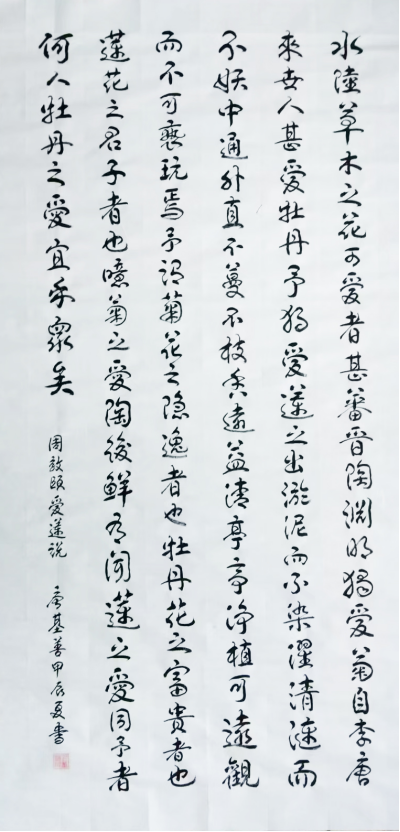 水陸草木之花可爱者甚蕃晉陶淵明獨愛菊自李唐
來世人甚愛牡丹予獨愛蓮之出淤泥而不染濯清漣而
不妖中通外直不蔓不枝香遠益清亭亭淨植可遠觀
而不可褻玩焉予謂菊花之隱逸者也牡丹花之富貴者也
蓮花之君子者也噫菊之愛陶後鮮有聞蓮之愛同予者
何人牡丹之愛宜乎眾矣
周敦頤愛蓮説 基善甲辰夏書